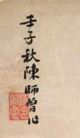 壬子秋陳師曾作